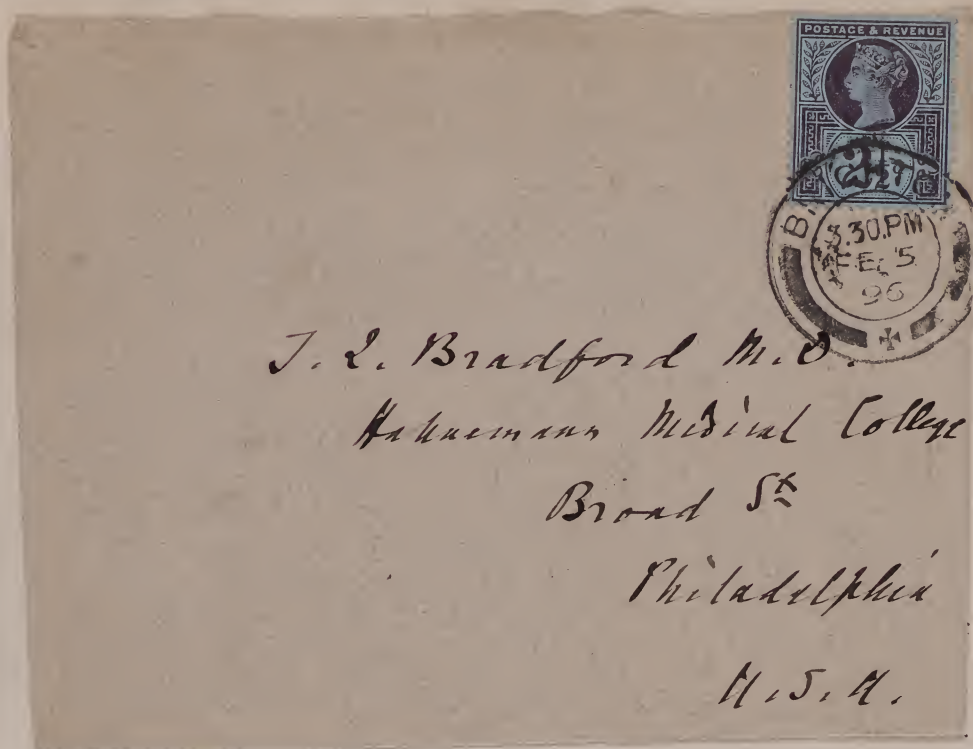 POSTAGE & REVENUE
2½
3.30.PM
FE 5
96
T. L. Bradford M.D.
Hahnemann Medical College
Broad St
Philadelphia
U.S.A.